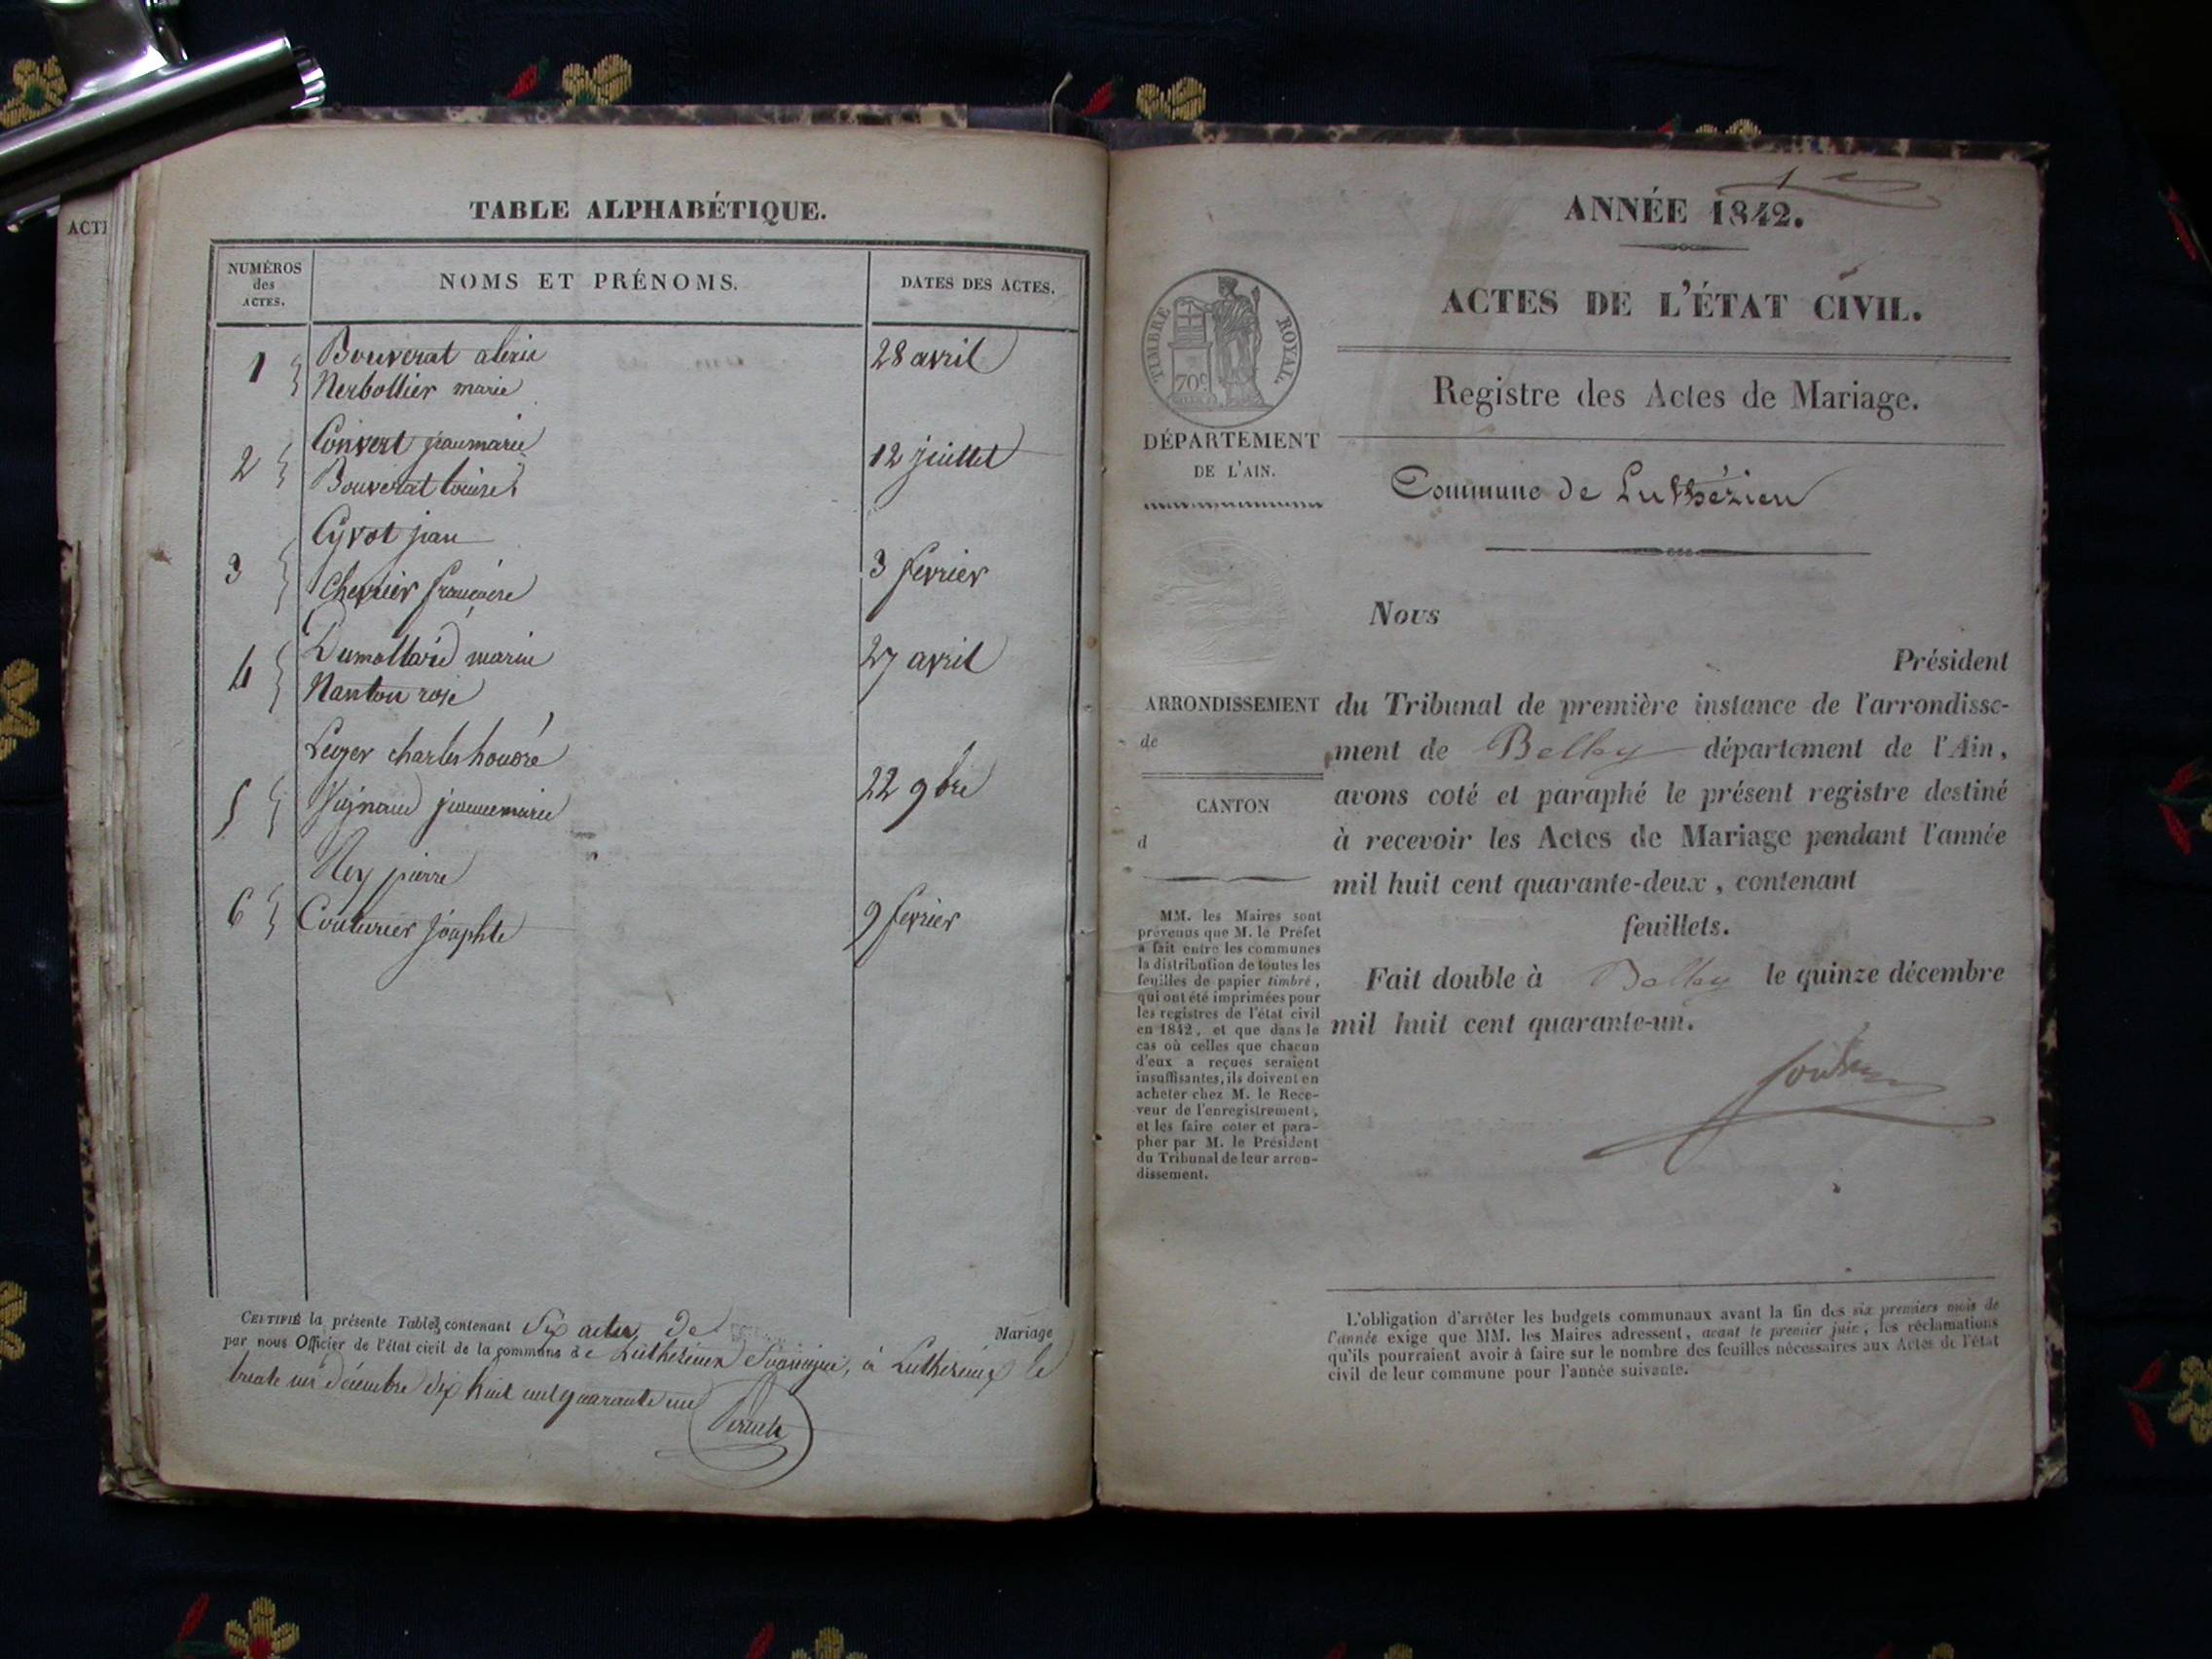 ACTI
TABLE ALPHABÉTIQUE.
NUMÉROS
des
ACTES.
NOMS ET PRÉNOMS.
DATES DES ACTES.
1
Bouverat alexis
28 avril
Nerbollier marie
2
Convert jeanmarie
12 juillet
Bouverat louise
3
Cyvot jean
3 fevrier
Chevrier françoise
4
Dumollard marin
27 avril
Nanton rose
5
Leger charles honoré
22 9bre
Vignaud jeannemarie
6
Rey pierre
9 fevrier
Couturier josephte
CERTIFIÉ la présente Table, contenant Six actes, de Mariage
par nous Officier de l'état civil de la commune de à le
trente un décembre dix huit cent quarante un
ANNÉE 1842.
ACTES DE L'ÉTAT CIVIL.
Registre des Actes de Mariage.
TIMBRE ROYAL.
70c
DÉPARTEMENT
DE L'AIN.
Commune de Luthézieu
Nous
Président
ARRONDISSEMENT
de
CANTON
d
du Tribunal de première instance de l'arrondisse-
ment de Belley département de l'Ain,
avons coté et paraphé le présent registre destiné
à recevoir les Actes de Mariage pendant l'année
mil huit cent quarante-deux, contenant
feuillets.
Fait double à Belley le quinze décembre
mil huit cent quarante-un.
MM. les Maires sont
prévenus que M. le Préfet
a fait entre les communes
la distribution de toutes les
feuilles de papier timbré,
qui ont été imprimées pour
les registres de l'état civil
en 1842, et que dans le
cas où celles que chacun
d'eux a reçues seraient
insuffisantes, ils doivent en
acheter chez M. le Rece-
veur de l'enregistrement,
et les faire coter et para-
pher par M. le Président
du Tribunal de leur arron-
dissement.
L'obligation d'arrêter les budgets communaux avant la fin des six premiers mois de
l'année exige que MM. les Maires adressent, avant le premier juin, les réclamations
qu'ils pourraient avoir à faire sur le nombre des feuilles nécessaires aux Actes de l'état
civil de leur commune pour l'année suivante.